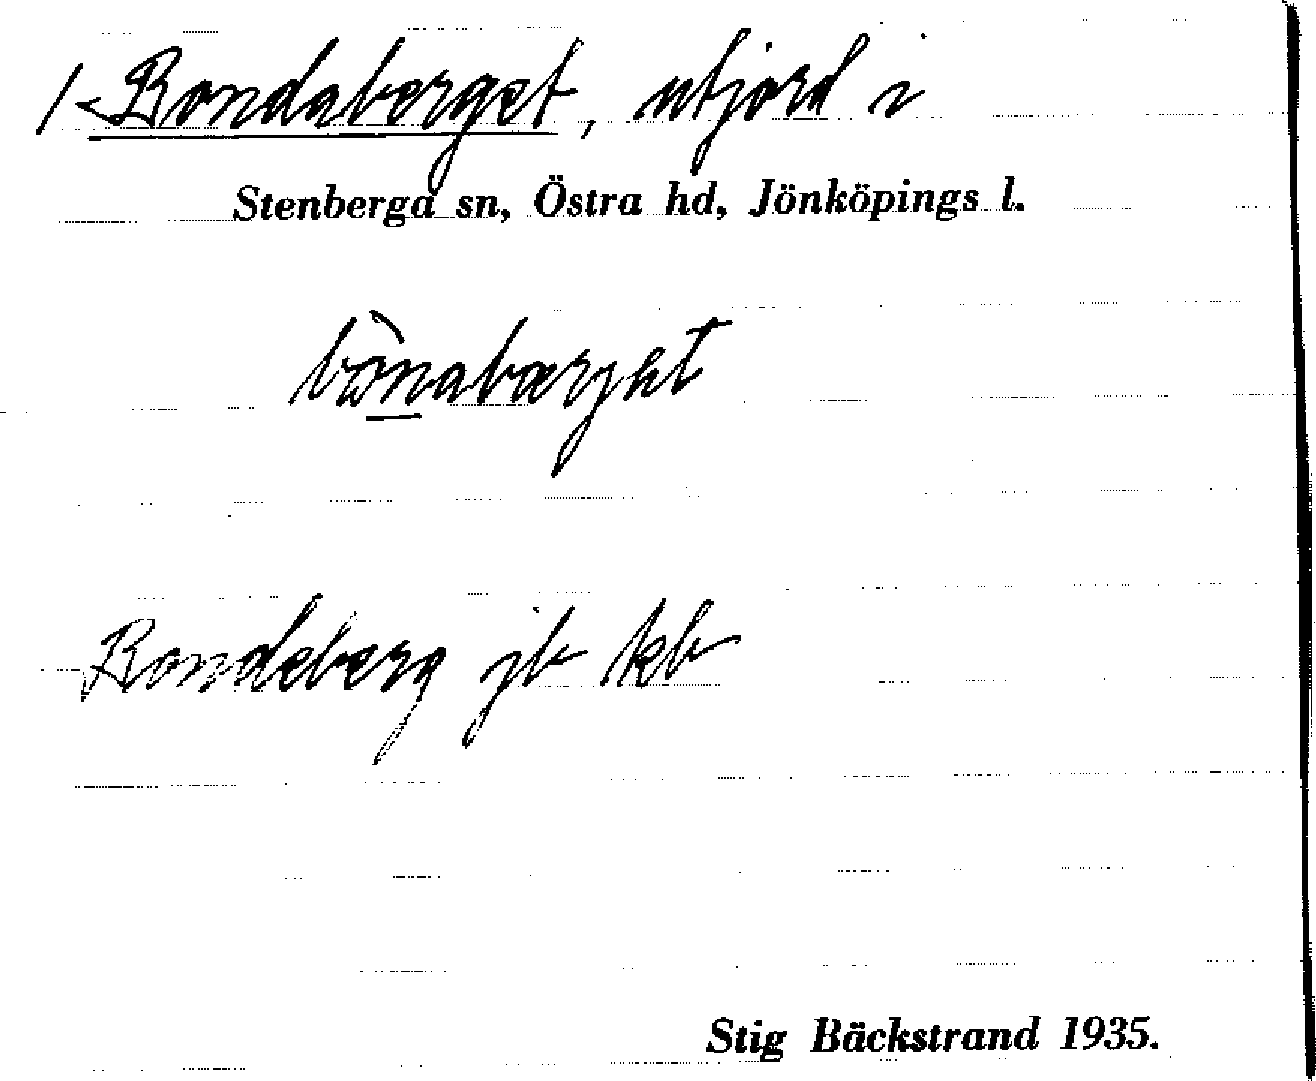 / Bondaberget, utjord i
Stenberga sn, Östra hd, Jönköpings l.
Bondeberg jb kb
Stig Bäckstrand 1935.